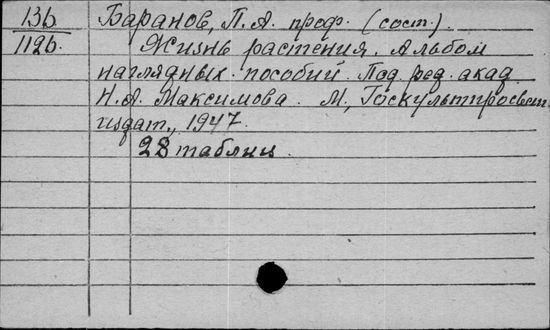 13б. Баранов, П. А. проф. (сост.).
112б. Жизнь растения. Альбом
наглядных пособий. Под ред. акад.
Н. А. Максимова. М., Госкультпросвет-
издат, 1947.
28 таблиц.